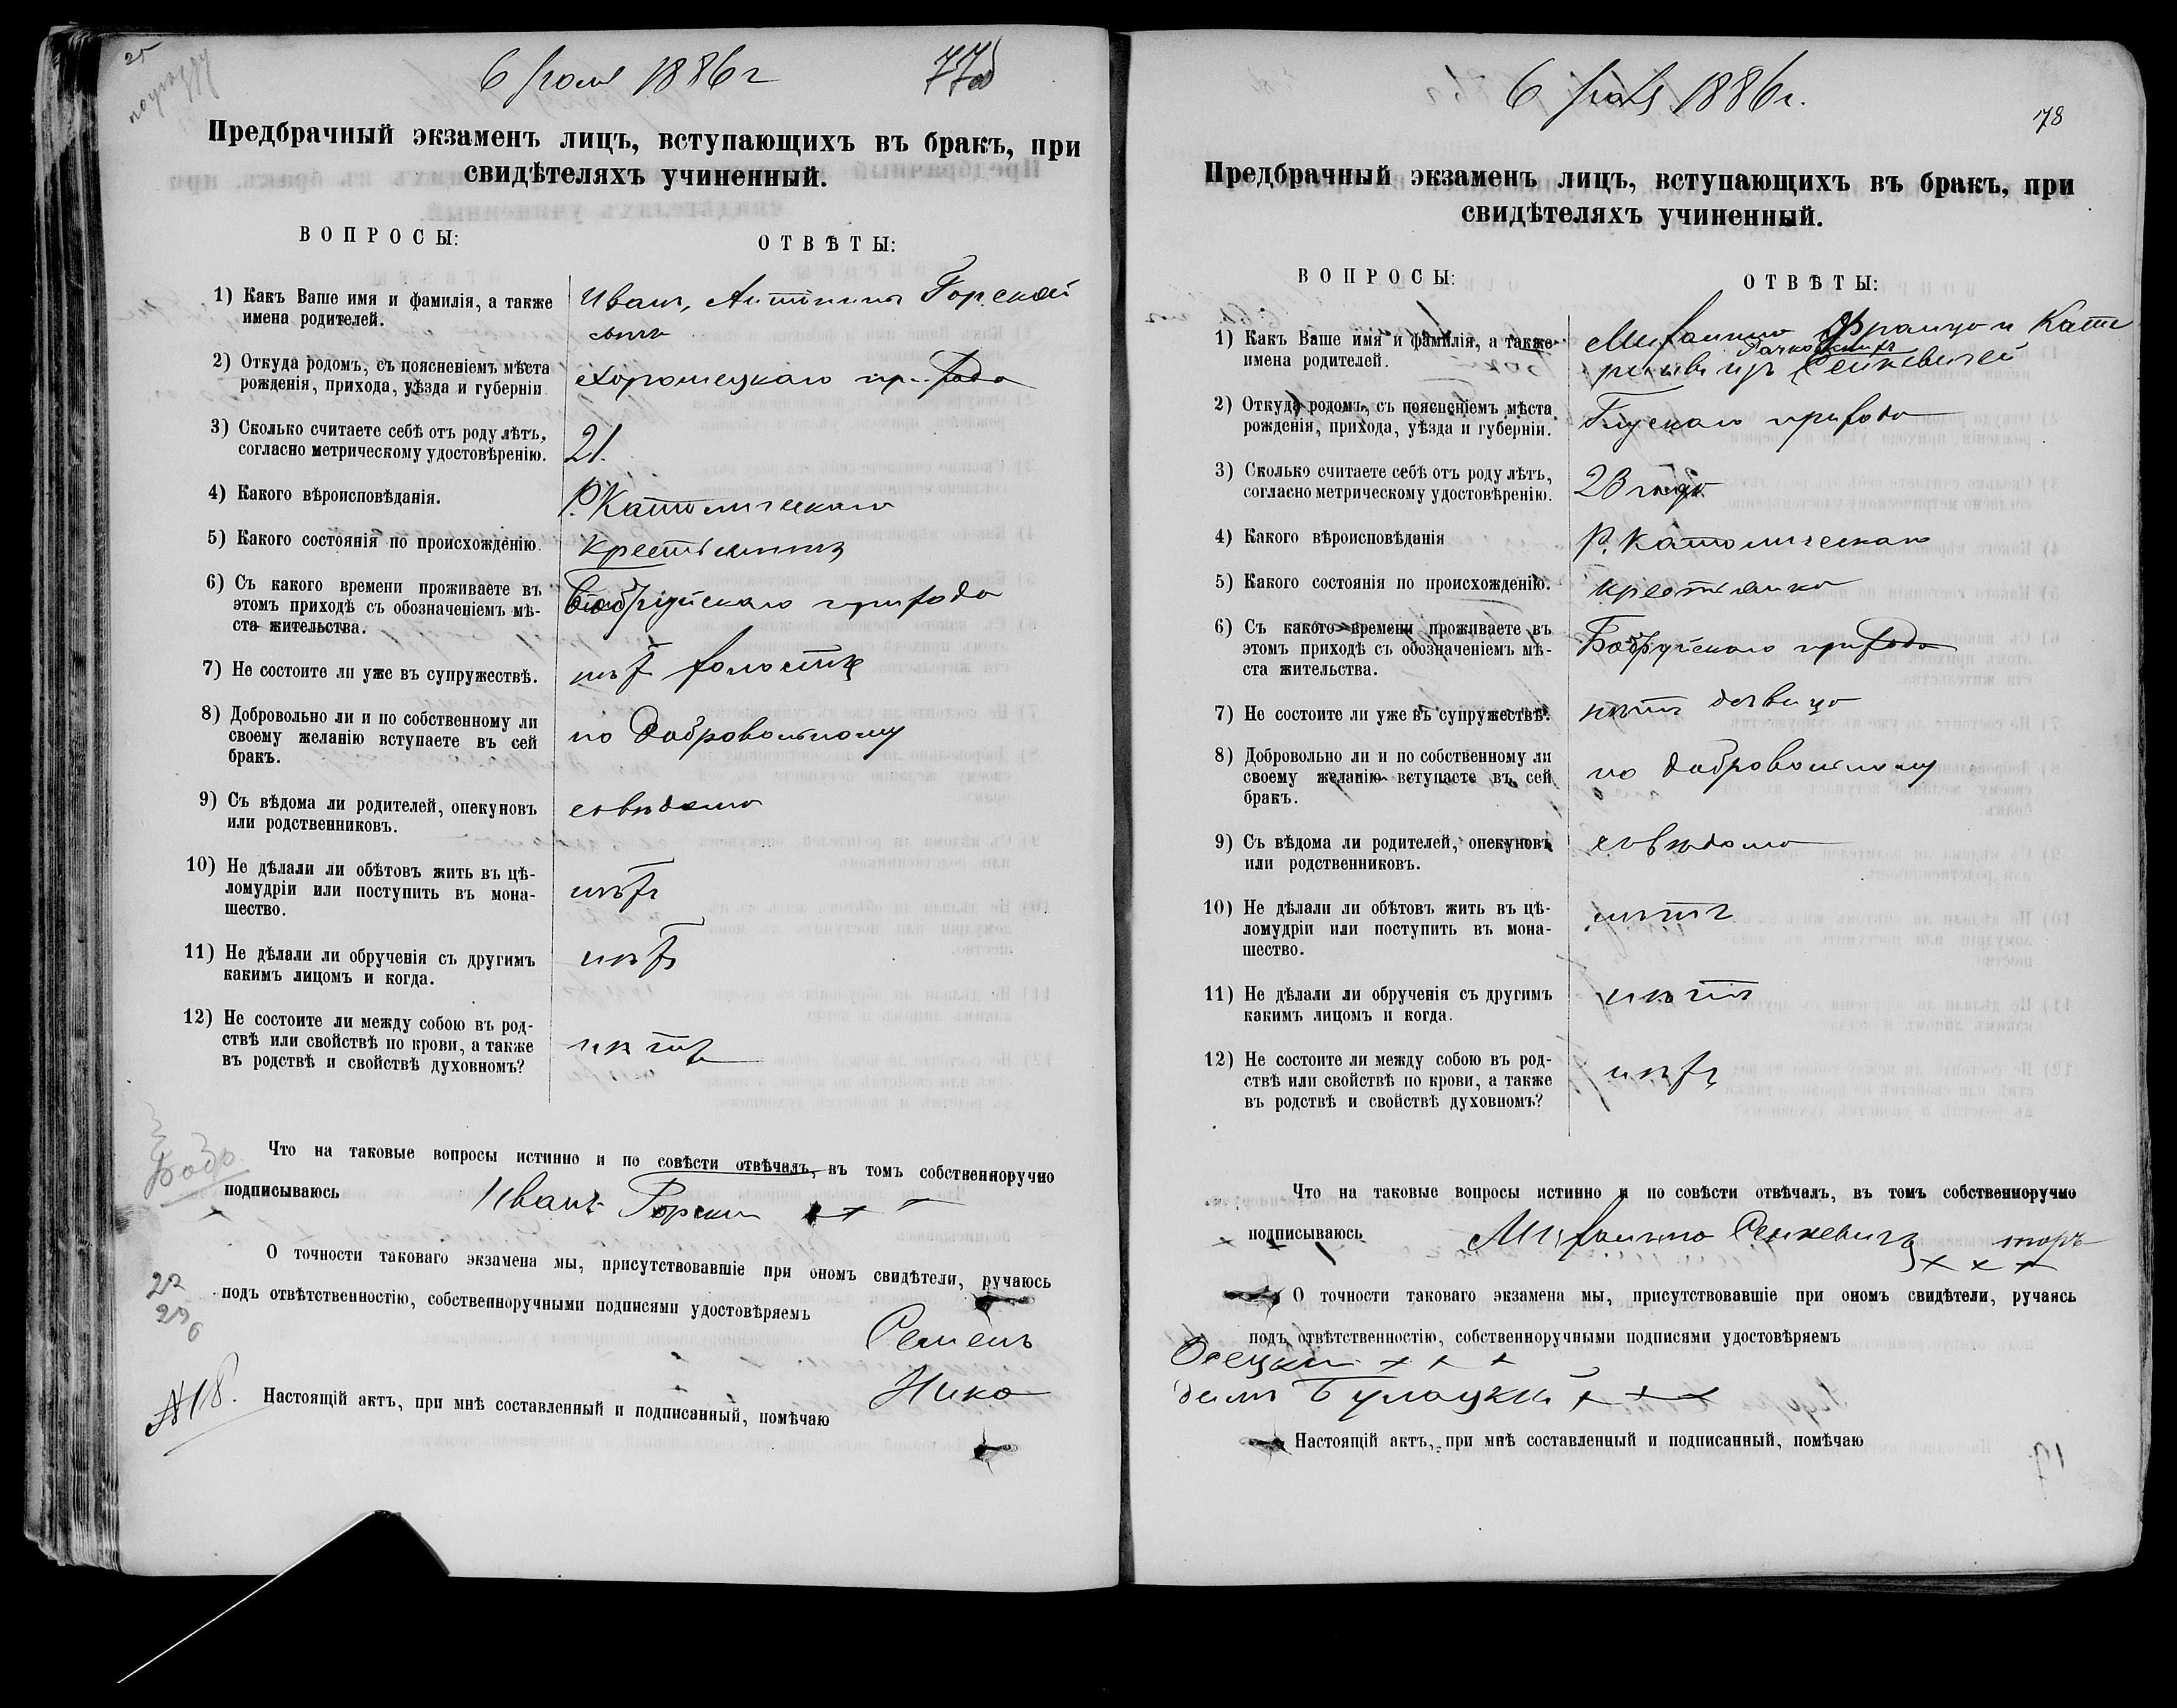 6 1886 г
77об
Предбрачный экзаменъ лицъ, вступающихъ въ бракъ, при
свидѣтеляхъ учиненный.
ВОПРОСЫ:
ОТВѢТЫ:
1) Какъ Ваше имя и фамилія, а также
имена родителей.
Иванъ, Антонины Горской
сынъ
2) Откуда родомъ, съ поясненіемъ мѣста
рожденія, прихода, уѣзда и губерніи
Хорошецкаго прихода
3) Сколько считаете себѣ отъ роду лѣтъ,
согласно метрическому удостовѣренію.
21.
4) Какого вѣроисповѣданія.
Р. Католическаго
5) Какого состоянія по происхожденію.
крестьянинъ
6) Съ какого времени проживаете въ
этомъ приходѣ съ обозначеніемъ мѣ-
ста жительства.
Бобруйскаго прихода
7) Не состоите ли уже въ супружествѣ.
нѣтъ холостъ
8) Добровольно ли и по собственному ли
своему желанію вступаете въ сей
бракъ.
по добровольному
9) Съ вѣдома ли родителей, опекуновъ
или родственниковъ.
совѣдомо
10) Не дѣлали ли обѣтовъ жить въ цѣ-
ломудріи или поступить въ мона-
шество.
нѣтъ
11) Не дѣлали ли обрученія съ другимъ
какимъ лицомъ и когда.
нѣтъ
12) Не состоите ли между собою въ род-
ствѣ или свойствѣ по крови, а также
въ родствѣ и свойствѣ духовномъ?
нѣтъ
Что на таковые вопросы истинно и по совѣсти отвѣчалъ, въ томъ собственноручно
подписываюсь Иванъ Горски + + +
О точности таковаго экзамена мы, присутствовавшіе при ономъ свидѣтели, ручаюсь
подъ отвѣтственностію, собственноручными подписями удостовѣряемъ
Семенъ
Нико
№18.
Настоящій актъ, при мнѣ составленный и подписанный, помѣчаю
6 1886 г.
78
Предбрачный экзаменъ лицъ, вступающихъ въ бракъ, при
свидѣтеляхъ учиненный.
ВОПРОСЫ:
ОТВѢТЫ:
1) Какъ Ваше имя и фамилія, а также
имена родителей.
Михалина Франца и Кате
рины изъ Сенкевичей
2) Откуда родомъ, съ поясненіемъ мѣста
рожденія, прихода, уѣзда и губерніи.
Глускаго прихода
3) Сколько считаете себѣ отъ роду лѣтъ,
согласно метрическому удостовѣренію.
23 года
4) Какого вѣроисповѣданія
Р. Католическаго
5) Какого состоянія по происхожденію.
крестьянка
6) Съ какого времени проживаете въ
этомъ приходѣ съ обозначеніемъ мѣ-
ста жительства.
Бобруйскаго прихода
7) Не состоите ли уже въ супружествѣ.
нѣтъ девица
8) Добровольно ли и по собственному ли
своему желанію вступаете въ сей
бракъ.
по добровольному
9) Съ вѣдома ли родителей, опекуновъ
или родственниковъ.
совѣдомо
10) Не дѣлали ли обѣтовъ жить въ цѣ-
ломудріи или поступить въ мона-
шество.
нѣтъ
11) Не дѣлали ли обрученія съ другимъ
какимъ лицомъ и когда.
нѣтъ
12) Не состоите ли между собою въ род-
ствѣ или свойствѣ по крови, а также
въ родствѣ и свойствѣ духовномъ?
нѣтъ
Что на таковые вопросы истинно и по совѣсти отвѣчалъ, въ томъ собственноручно
подписываюсь Михалина Сенкевичъ
+ + +
О точности таковаго экзамена мы, присутствовавшіе при ономъ свидѣтели, ручаясь
подъ отвѣтственностію, собственноручными подписями удостовѣряемъ
Осецки + + +
демъ Булацкій + + +
Настоящій актъ, при мнѣ составленный и подписанный, помѣчаю